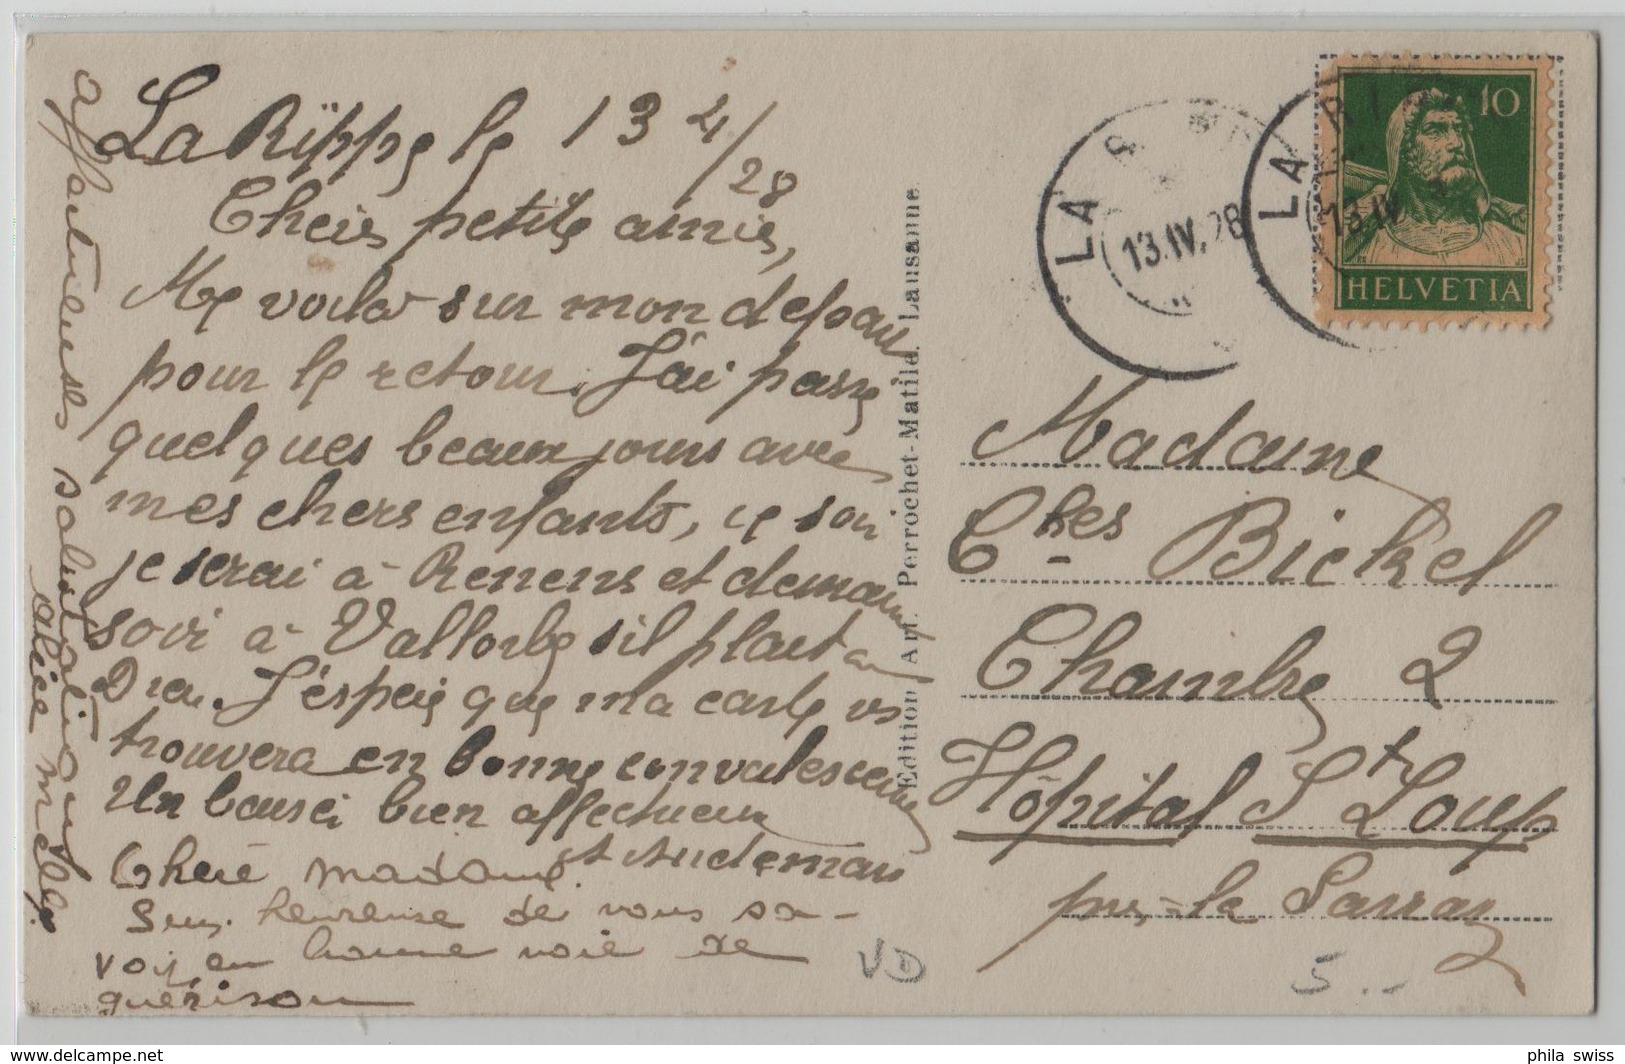 La Rippe le 13 4/28
Cheis petits amis,
Me voila sur mon depau
pour le retour. J'ai passe
quelques beaux jours avec
mes chers enfants, ce soir
je serai à Renens et demain
soir à Vallorbe s'il plait a
Dieu. J'espeie que ma carte vs
trouvera en bonne convalescence
Un baisei bien affectueux
A Audemars
Cheie Madame
Suis heureuse de vous sa-
voir en bonne voie de
guérison
affectueuses salutations
Alice
Edition Art. Perrochet-Matile. Lausanne
LA R
13.IV.28
LA RI
13.IV
10
HELVETIA
Madame
Ches Bickel
Chambre 2
Hôpital St Loup
près-la Sarraz
VD
5..
www.delcampe.net
phila swiss